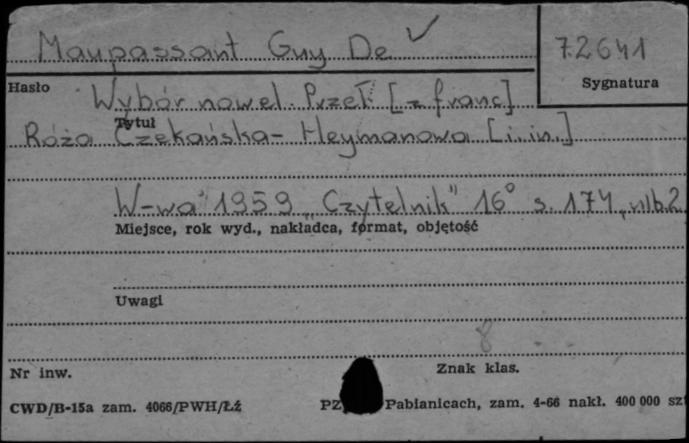 Maupassant Guy De ✓
72641
Hasło
Sygnatura
Wybór nowel. Przeł. [z franc]
Tytuł
Róża Czekańska-Heymanowa [i in.]
W-wa 1959 „Czytelnik" 16° s. 174, nlb. 2
Miejsce, rok wyd., nakładca, format, objętość
Uwagi
8
Nr inw.
Znak klas.
CWD/B-15a zam. 4066/PWH/Łź
PZ Pabianicach, zam. 4-66 nakł. 400 000 szt